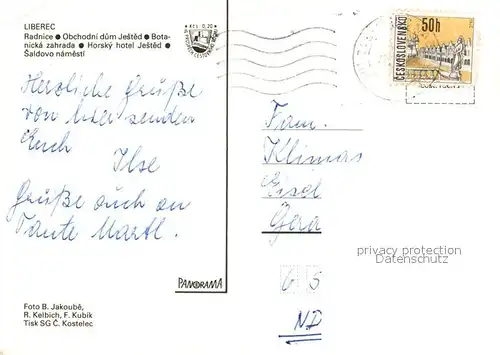 LIBEREC
Radnice ● Obchodní dům Ještěd ● Bota-
nická zahrada ● Horský hotel Ještěd ●
Šaldovo náměstí
Kčs 0,20
50h
ČESKOSLOVENSKO
Herzliche Grüße
von hier senden
Euch
Ilse
Grüße auch an
Tante Martl.
Fam.
Klimas
Gera
65
ND
privacy protection
Datenschutz
PANORAMA
Foto B. Jakoubě,
R. Kelbich, F. Kubík
Tisk SG Č. Kostelec